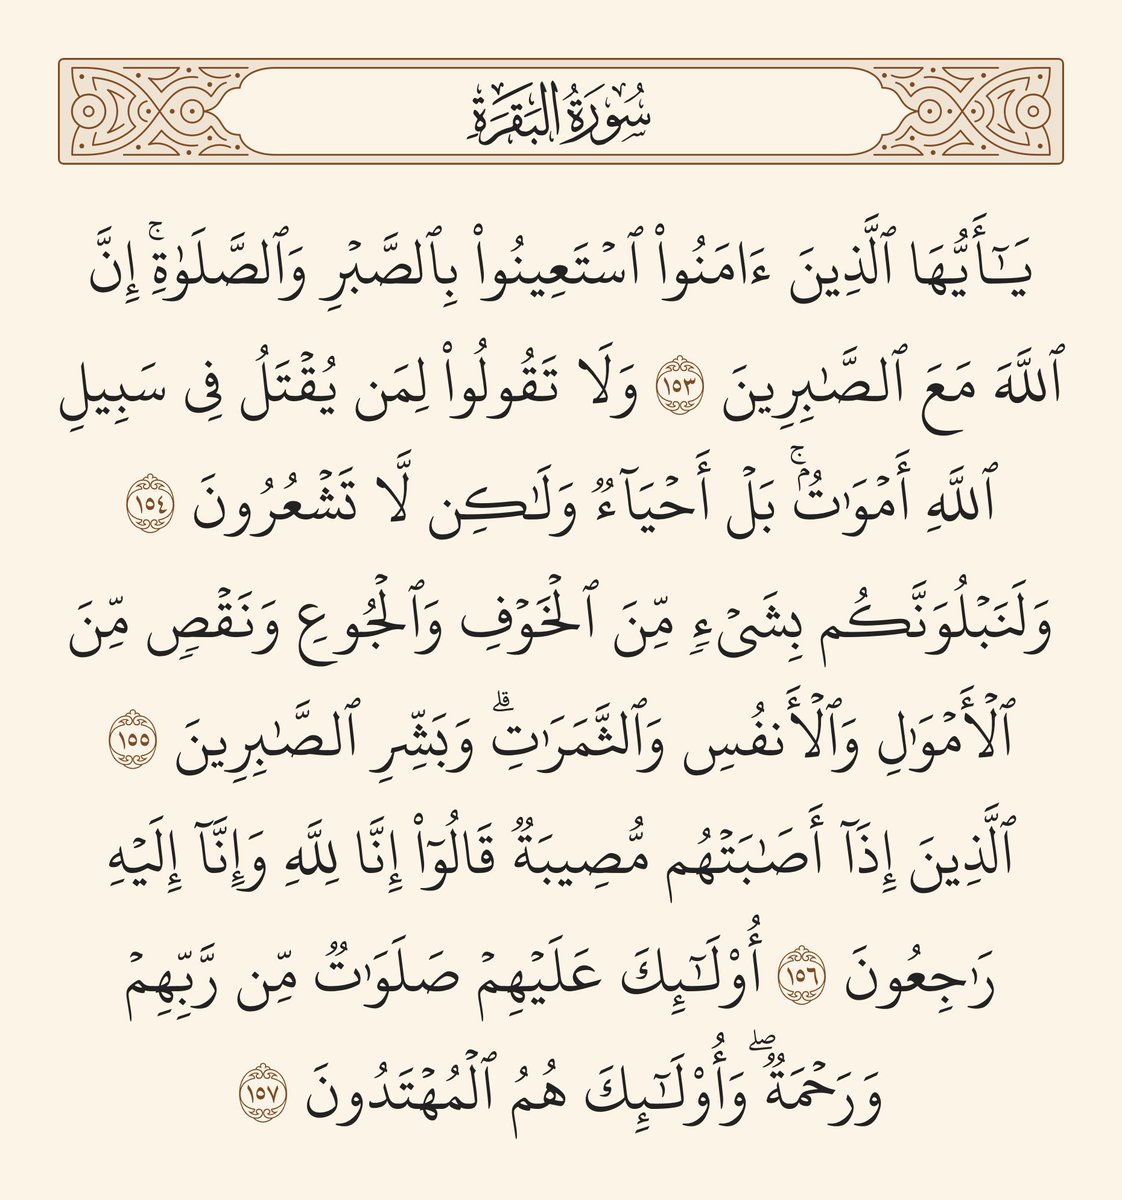 سُورَةُ البَقَرَةِ
يَـٰٓأَيُّهَا ٱلَّذِينَ ءَامَنُوا۟ ٱسْتَعِينُوا۟ بِٱلصَّبْرِ وَٱلصَّلَوٰةِ ۚ إِنَّ
ٱللَّهَ مَعَ ٱلصَّـٰبِرِينَ ١٥٣ وَلَا تَقُولُوا۟ لِمَن يُقْتَلُ فِى سَبِيلِ
ٱللَّهِ أَمْوَٰتٌۢ ۚ بَلْ أَحْيَآءٌ وَلَـٰكِن لَّا تَشْعُرُونَ ١٥٤
وَلَنَبْلُوَنَّكُم بِشَىْءٍ مِّنَ ٱلْخَوْفِ وَٱلْجُوعِ وَنَقْصٍ مِّنَ
ٱلْأَمْوَٰلِ وَٱلْأَنفُسِ وَٱلثَّمَرَٰتِ ۗ وَبَشِّرِ ٱلصَّـٰبِرِينَ ١٥٥
ٱلَّذِينَ إِذَآ أَصَـٰبَتْهُم مُّصِيبَةٌ قَالُوٓا۟ إِنَّا لِلَّهِ وَإِنَّآ إِلَيْهِ
رَٰجِعُونَ ١٥٦ أُو۟لَـٰٓئِكَ عَلَيْهِمْ صَلَوَٰتٌ مِّن رَّبِّهِمْ
وَرَحْمَةٌ ۖ وَأُو۟لَـٰٓئِكَ هُمُ ٱلْمُهْتَدُونَ ١٥٧